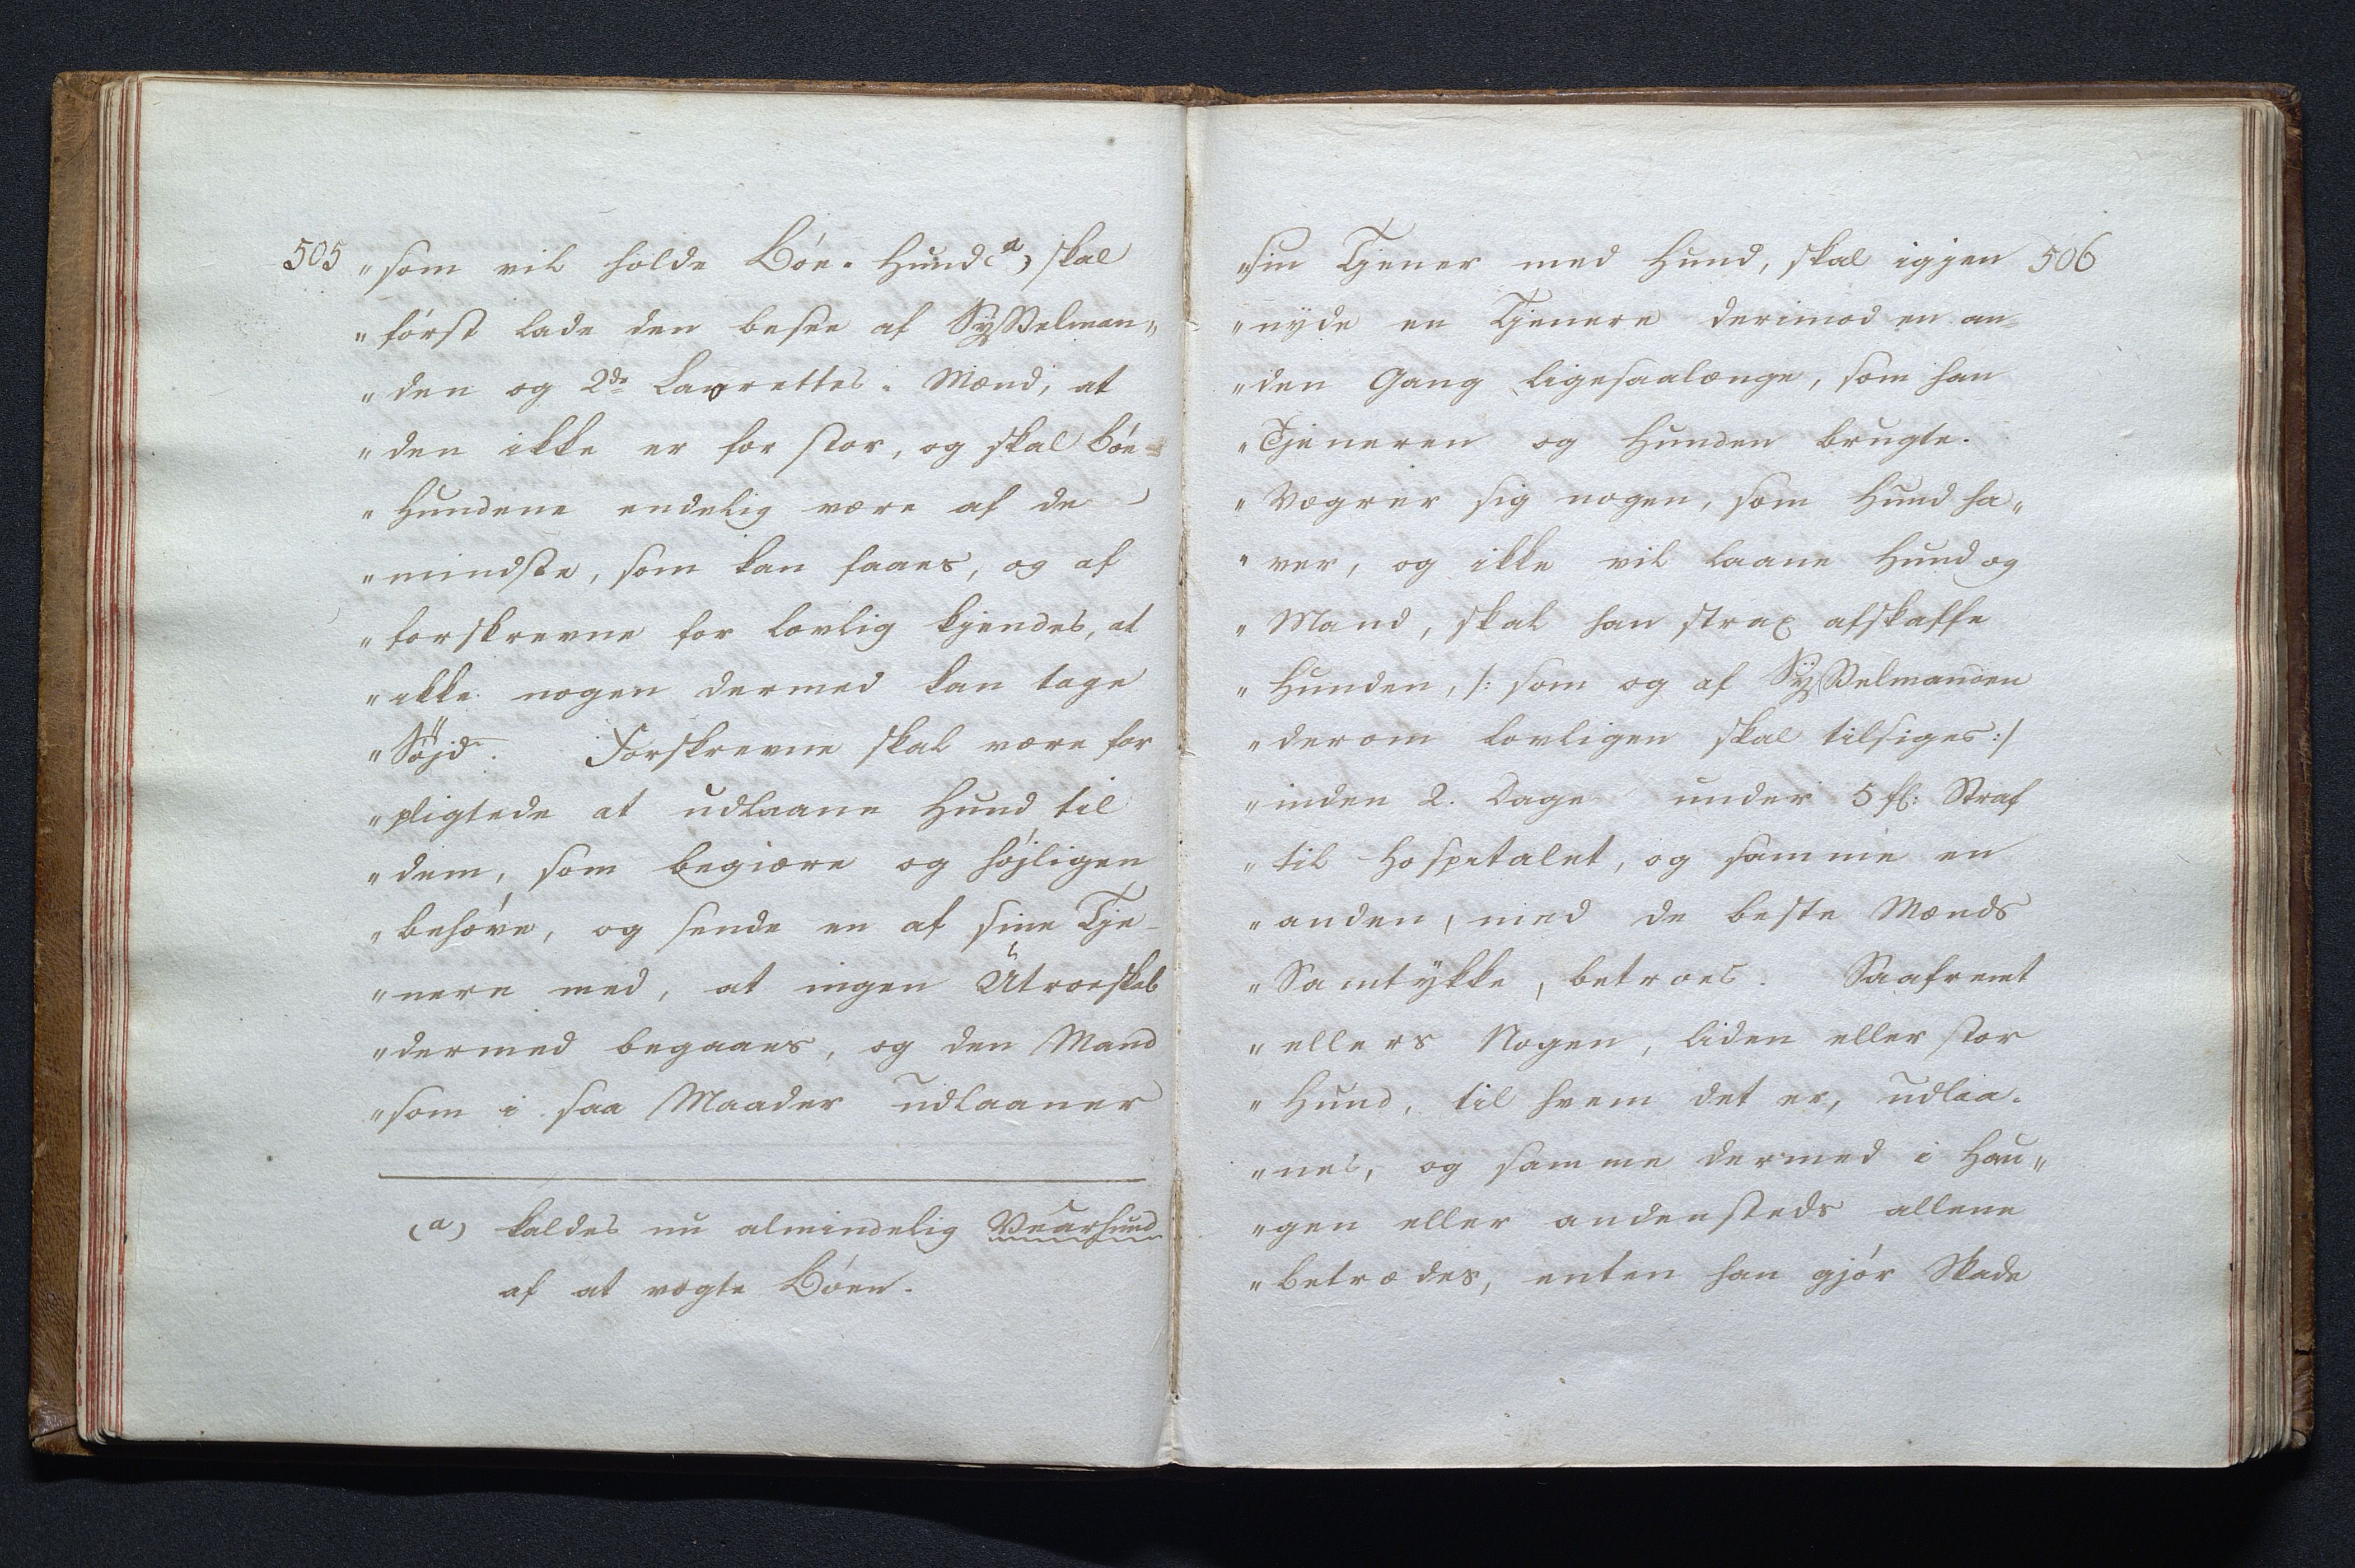 505
„som vil holde Böe-Hund (a) skal
„först lade den besee af Sysselman„
„den og 2de Lavrettes-Mænd, at
„den ikke er for stor, og skal Böe-
„Hundene endelig være af de
„mindste, som kan faaes, og af
„forskrevne for lovlig kjendes, at
„ikke nogen dermed kan tage
„Söjd. Forskrevne skal være for
„pligtede at udlaane Hund til
„dem, som begiære og höjligen
„behöve, og sende en af sine Tje-
„nere med, at ingen Utroeskab
„dermed begaaes, og den Mand
„som i saa Maader udlaaner
(a) kaldes nu almindelig Vuarhund
af at vogte Böen.
506
„sin Tjener med Hund, skal igjen
„nyde en Tjenere derimod en an
„den Gang ligesaalænge, som han
„Tjeneren og Hunden brugte.
„Vægrer sig nogen, som Hund ha„
„ver, og ikke vil laane Hund og
„Mand, skal han strax afskaffe
„Hunden, /: som og af Sysselmanden
„derom lovligen skal tilsiges :/
„inden 2. Dage under 5 fl: Straf
„til Hospitalet, og samme en
„anden, med de beste Mænds
„Samtykke, betroes. Saafremt
„ellers Nogen, liden eller stor
„Hund, til hvem det er, udlaa-
„nes, og samme dermed i Hau„
„gen eller andensteds allene
„betrædes, enten han gjör Skade